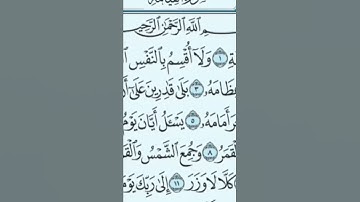 سم الله الرحمن الرحيم
ة ١ ولا أقسم بالنفس ا
ظامه ٣ بلى قدرين على أن
ر أمامه ٥ يسـٔل أيان يوم
لقمر ٨ وجمع الشمس والقم
كلا لا وزر ١١ إلى ربك يوم